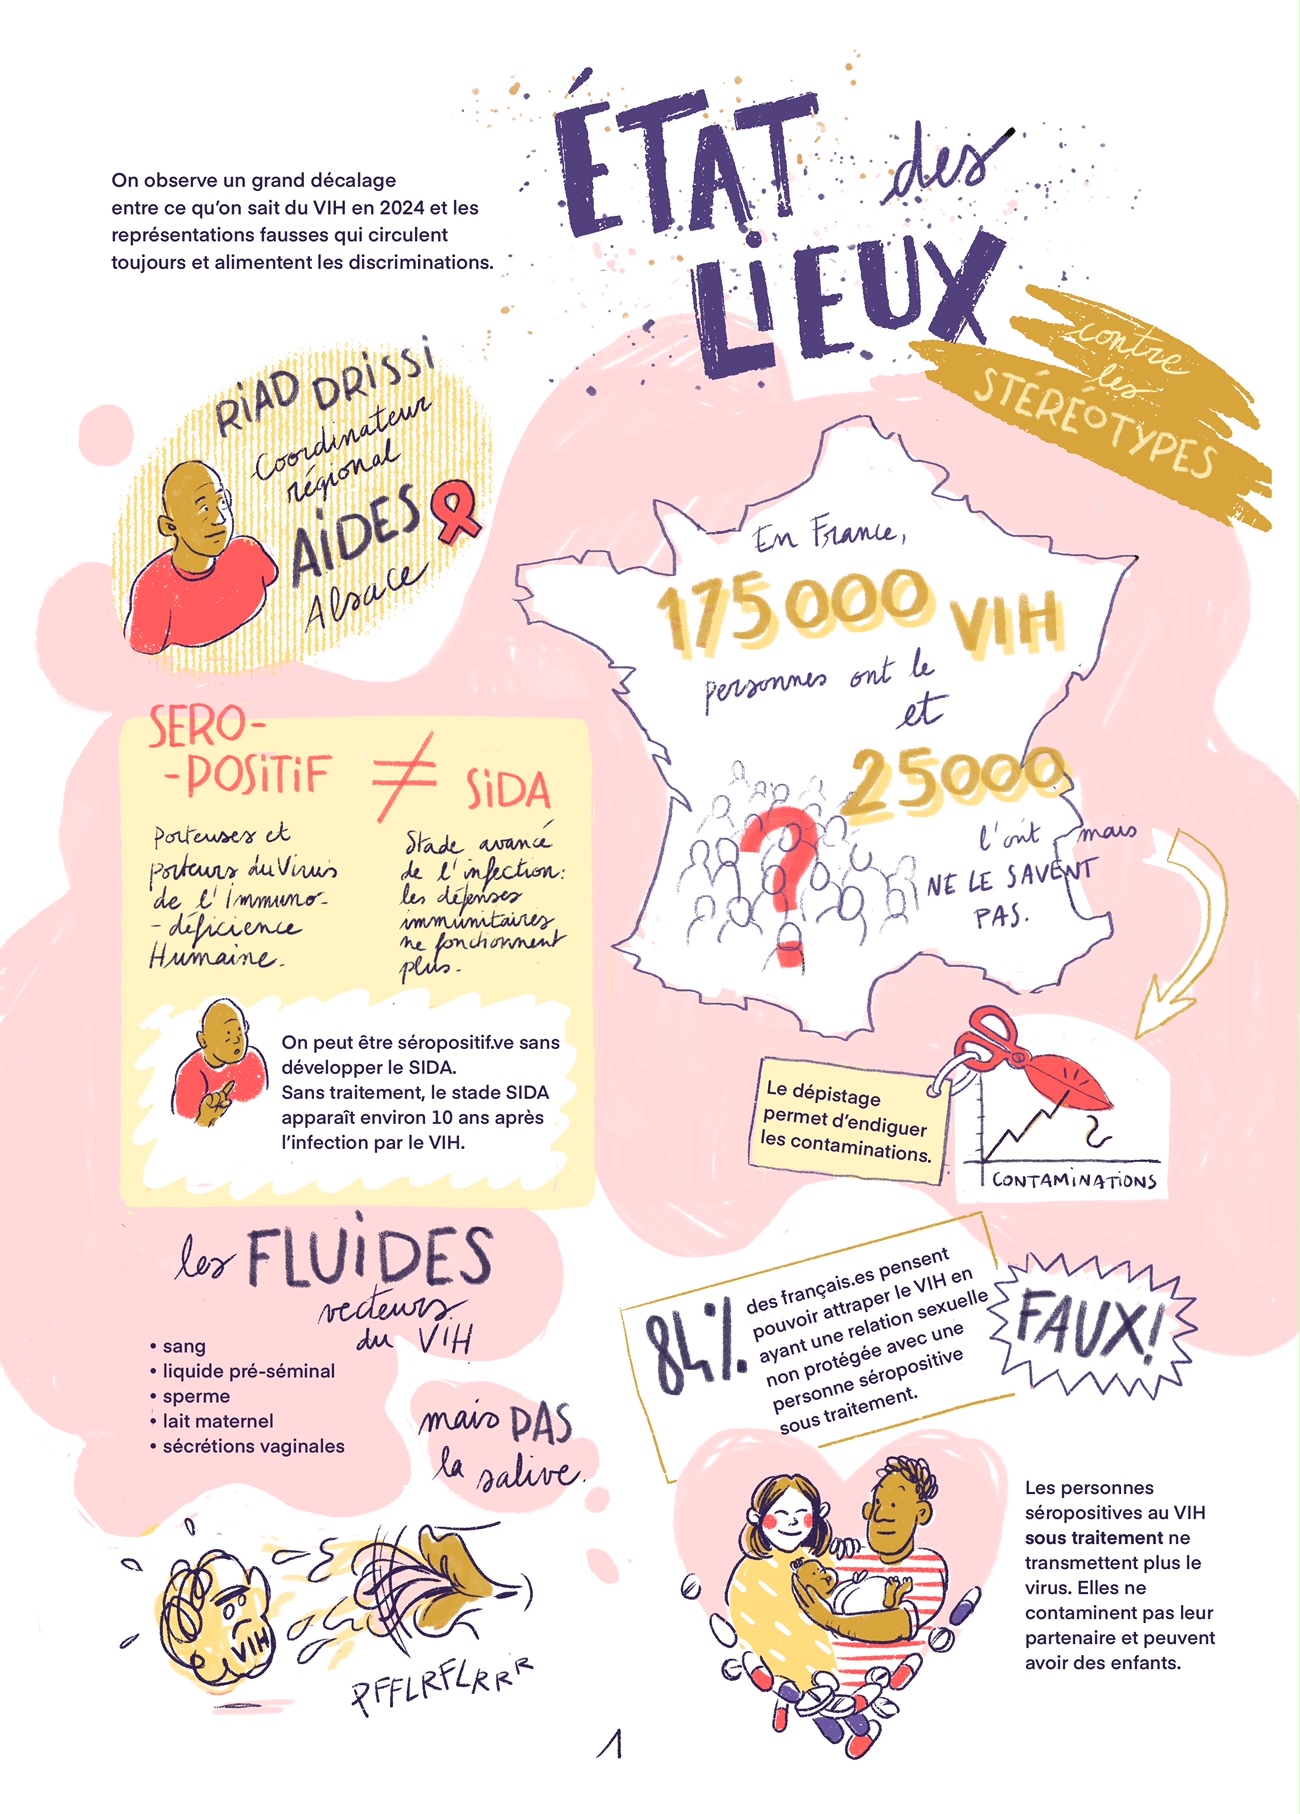 ÉTAT des
LiEUX
contre
les
STÉRÉOTYPES
On observe un grand décalage
entre ce qu'on sait du VIH en 2024 et les
représentations fausses qui circulent
toujours et alimentent les discriminations.
RiAD DRiSSi
Coordinateur
régional
AiDES
Alsace
En France,
175000 VIH
personnes ont le
et
25000
l'ont mais
NE LE SAVENT
PAS.
?
SERO-
-POSiTiF ≠ SiDA
Porteuses et
porteurs du Virus
de l'Immuno-
-déficience
Humaine.
Stade avancé
de l'infection:
les défenses
immunitaires
ne fonctionnent
plus.
On peut être séropositif.ve sans
développer le SIDA.
Sans traitement, le stade SIDA
apparaît environ 10 ans après
l'infection par le VIH.
Le dépistage
permet d'endiguer
les contaminations.
CONTAMiNATiONS
les FLUiDES
vecteurs
du VIH
• sang
• liquide pré-séminal
• sperme
• lait maternel
• sécrétions vaginales
mais PAS
la salive.
VIH
PFFLRFLRRR
84%
des français.es pensent
pouvoir attraper le VIH en
ayant une relation sexuelle
non protégée avec une
personne séropositive
sous traitement.
FAUX!
Les personnes
séropositives au VIH
sous traitement ne
transmettent plus le
virus. Elles ne
contaminent pas leur
partenaire et peuvent
avoir des enfants.
1